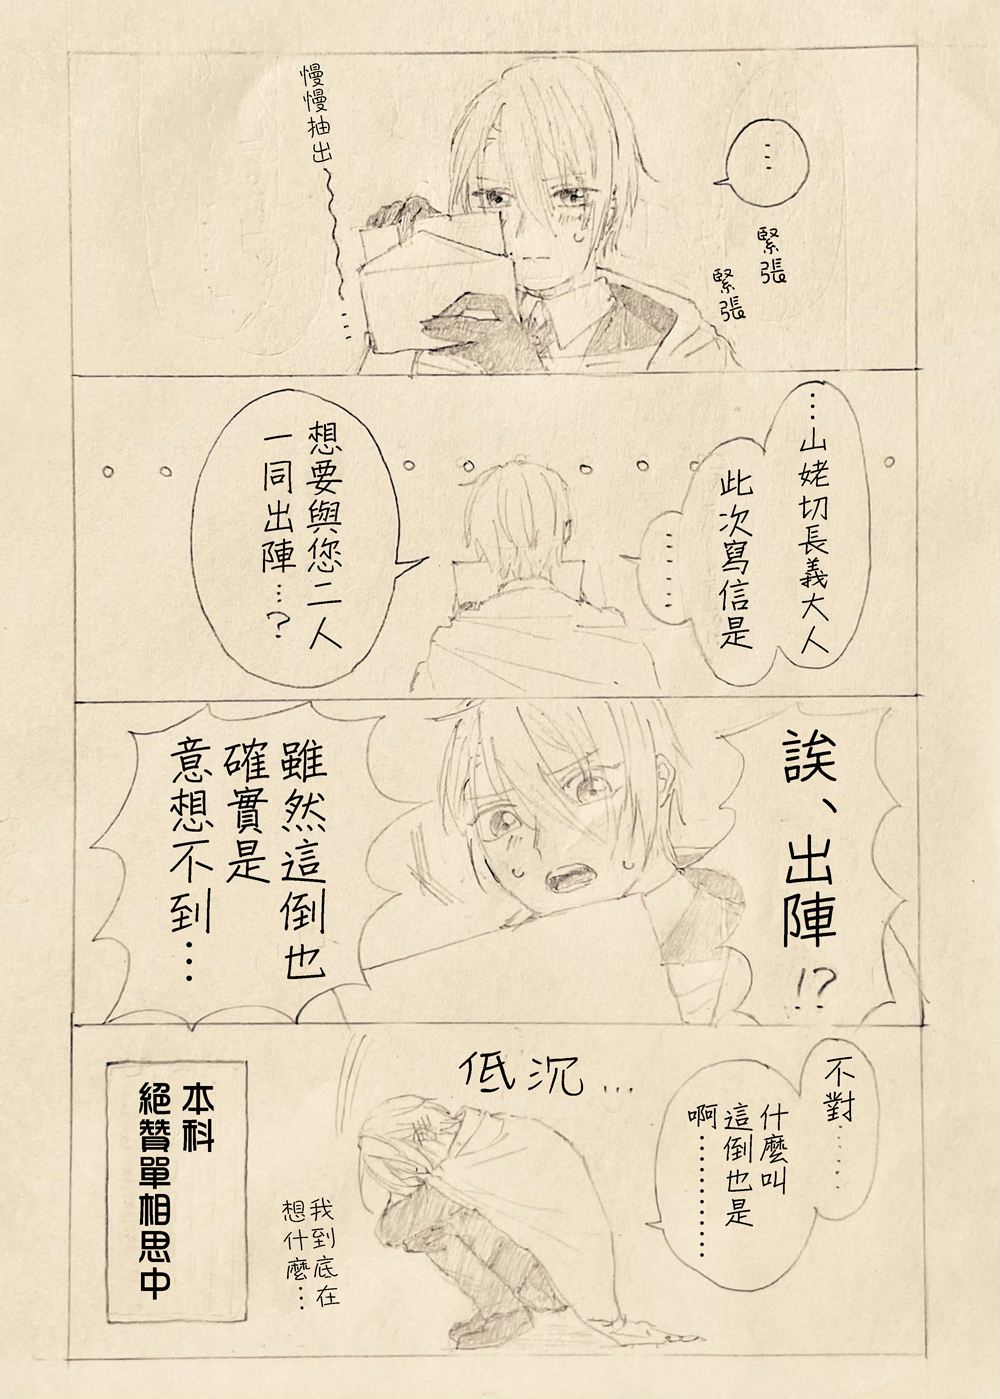 …
緊張
緊張
慢慢抽出
…
…山姥切長義大人
此次寫信是
……
想要與您二人
一同出陣…?
誒、出陣!?
雖然這倒也
確實是
意想不到…
不對……
什麼叫
這倒也是
啊…………
低沉…
我到底在
想什麼…
本科
絕贊單相思中